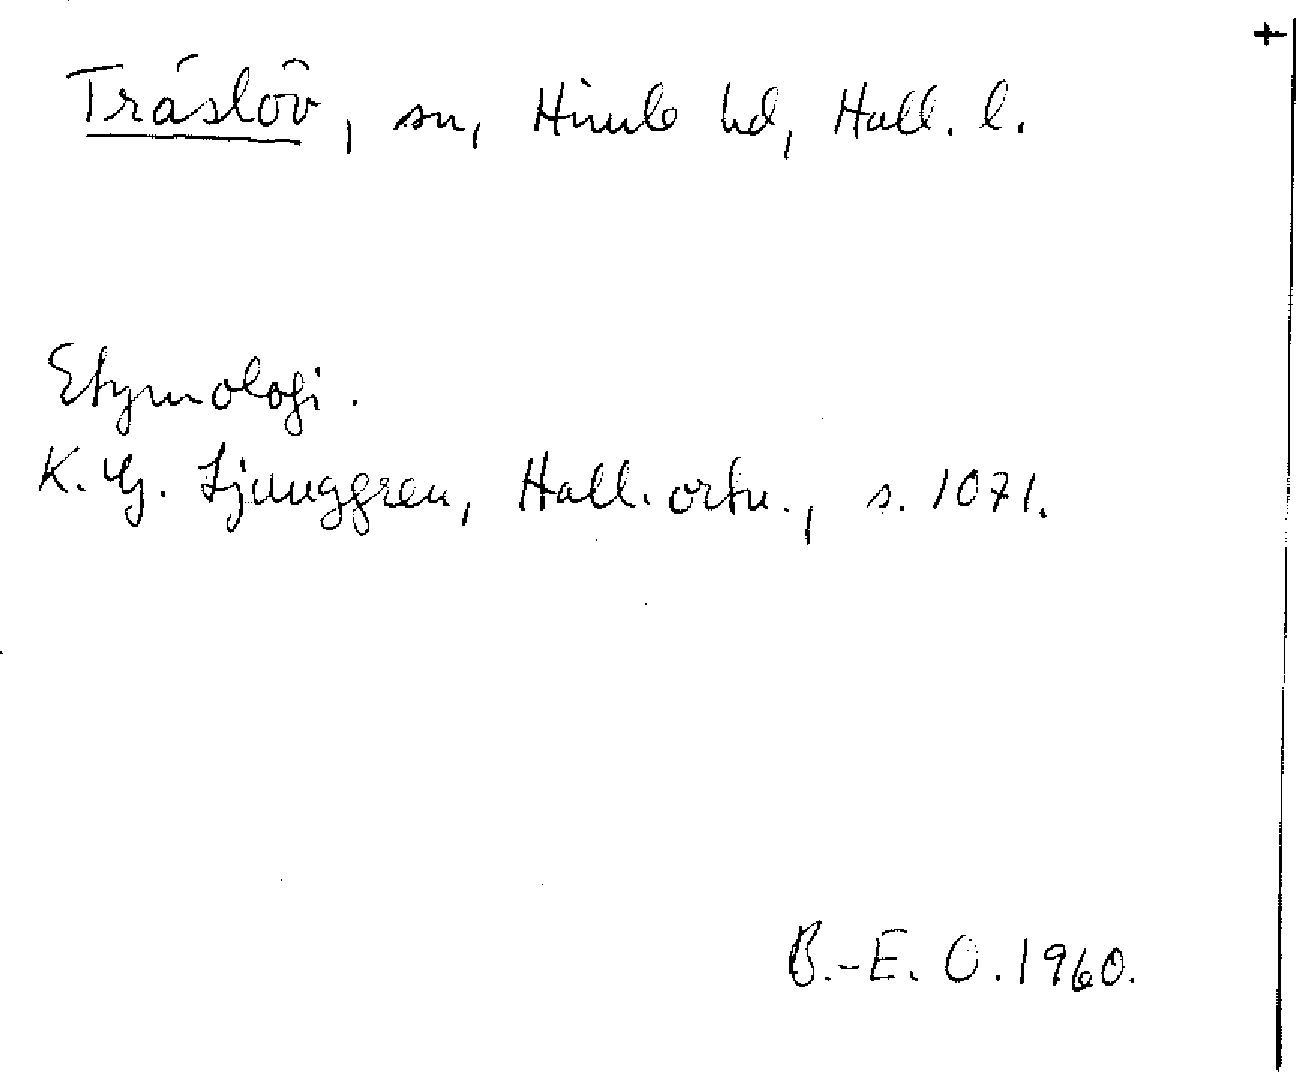 Träslöv, sn, Himle hd, Hall. l.
Etymologi.
K. G. Ljunggren, Hall. ortn., s. 1071.
B.-E. O. 1960.